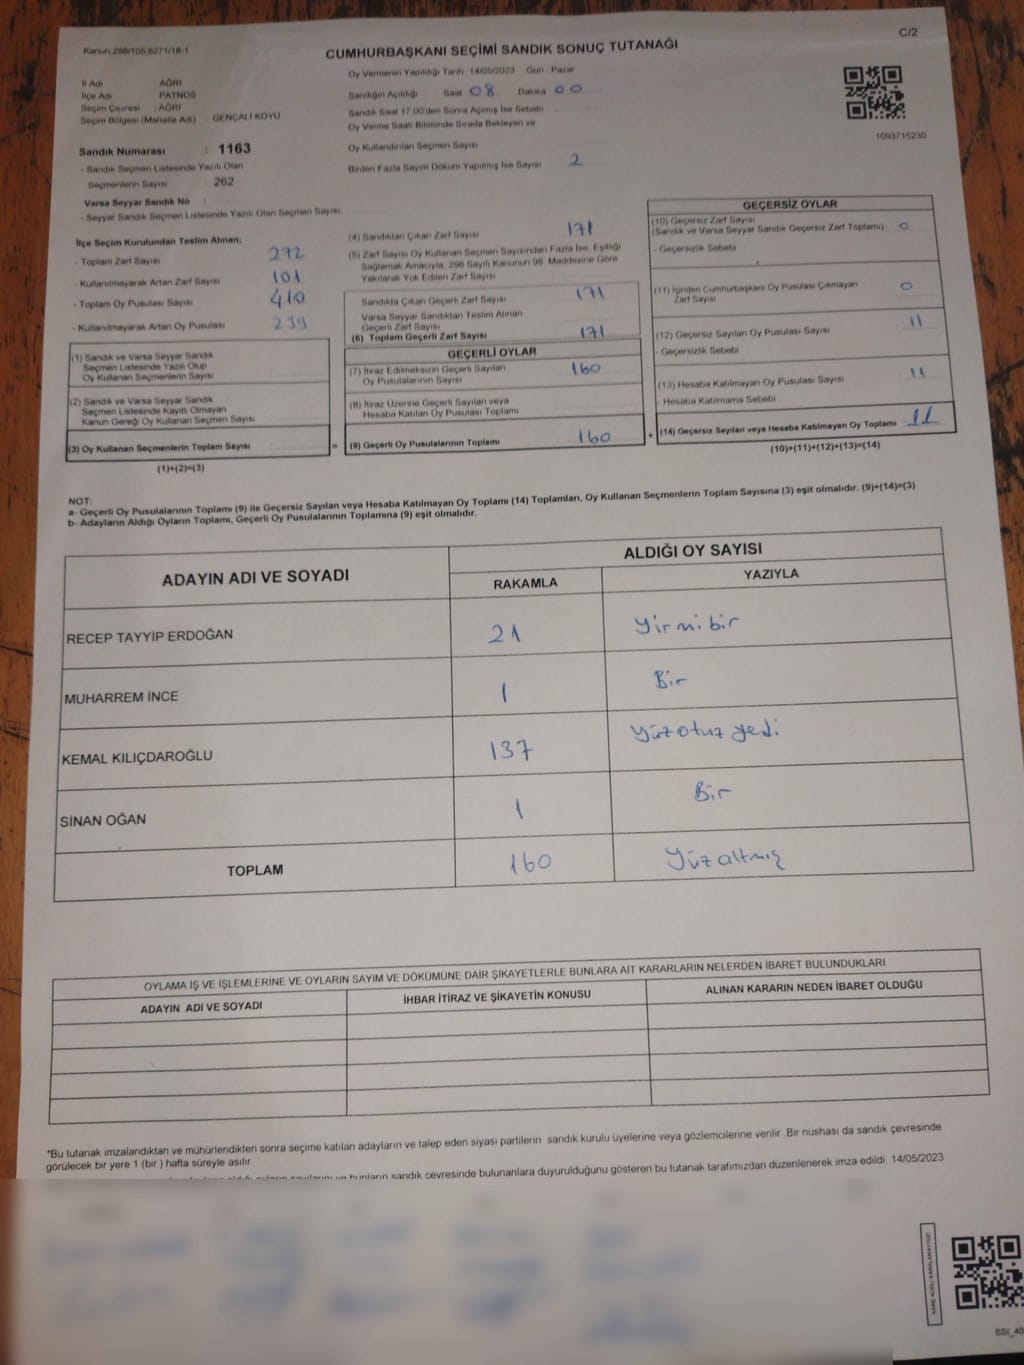 Kanun 298/105,6271/18-1
C/2
CUMHURBAŞKANI SEÇİMİ SANDIK SONUÇ TUTANAĞI
İl Adı AĞRI
İlçe Adı PATNOS
Seçim Çevresi : AĞRI
Seçim Bölgesi (Mahalle Adı) GENÇALİ KÖYÜ
Sandık Numarası : 1163
- Sandık Seçmen Listesinde Yazılı Olan
Seçmenlerin Sayısı : 262
Varsa Seyyar Sandık No :
- Seyyar Sandık Seçmen Listesinde Yazılı Olan Seçmen Sayısı
Oy Vermenin Yapıldığı Tarih 14/05/2023 Gün Pazar
Sandığın Açıldığı Saat 08 Dakika 00
Sandık Saat 17:00'den Sonra Açılmış İse Sebebi
Oy Verme Saati Bitiminde Sırada Bekleyen ve
Oy Kullandırılan Seçmen Sayısı
Birden Fazla Sayım Döküm Yapılmış İse Sayısı 2
1093715230
İlçe Seçim Kurulundan Teslim Alınan;
- Toplam Zarf Sayısı 272
- Kullanılmayarak Artan Zarf Sayısı 101
- Toplam Oy Pusulası Sayısı 410
- Kullanılmayarak Artan Oy Pusulası 239
(1) Sandık ve Varsa Seyyar Sandık
Seçmen Listesinde Yazılı Olup
Oy Kullanan Seçmenlerin Sayısı
(2) Sandık ve Varsa Seyyar Sandık
Seçmen Listesinde Kayıtlı Olmayan
Kanun Gereği Oy Kullanan Seçmen Sayısı
(3) Oy Kullanan Seçmenlerin Toplam Sayısı
(1)+(2)=(3)
(4) Sandıktan Çıkan Zarf Sayısı 171
(5) Zarf Sayısı Oy Kullanan Seçmen Sayısından Fazla İse, Eşitliği
Sağlamak Amacıyla, 298 Sayılı Kanunun 98. Maddesine Göre
Yakılarak Yok Edilen Zarf Sayısı
Sandıkta Çıkan Geçerli Zarf Sayısı 171
Varsa Seyyar Sandıktan Teslim Alınan
Geçerli Zarf Sayısı
(6) Toplam Geçerli Zarf Sayısı 171
GEÇERLİ OYLAR
(7) İtiraz Edilmeksizin Geçerli Sayılan
Oy Pusulalarının Sayısı 160
(8) İtiraz Üzerine Geçerli Sayılan veya
Hesaba Katılan Oy Pusulası Toplamı
= (9) Geçerli Oy Pusulalarının Toplamı 160 +
GEÇERSİZ OYLAR
(10) Geçersiz Zarf Sayısı
(Sandık ve Varsa Seyyar Sandık Geçersiz Zarf Toplamı) 0
- Geçersizlik Sebebi
(11) İçinden Cumhurbaşkanı Oy Pusulası Çıkmayan
Zarf Sayısı 0
(12) Geçersiz Sayılan Oy Pusulası Sayısı 11
- Geçersizlik Sebebi
(13) Hesaba Katılmayan Oy Pusulası Sayısı 11
- Hesaba Katılmama Sebebi
(14) Geçersiz Sayılan veya Hesaba Katılmayan Oy Toplamı 11
(10)+(11)+(12)+(13)=(14)
NOT:
a- Geçerli Oy Pusulalarının Toplamı (9) ile Geçersiz Sayılan veya Hesaba Katılmayan Oy Toplamı (14) Toplamları, Oy Kullanan Seçmenlerin Toplam Sayısına (3) eşit olmalıdır. (9)+(14)=(3)
b- Adayların Aldığı Oyların Toplamı, Geçerli Oy Pusulalarının Toplamına (9) eşit olmalıdır.
ADAYIN ADI VE SOYADI
ALDIĞI OY SAYISI
RAKAMLA YAZIYLA
RECEP TAYYİP ERDOĞAN 21 yirmibir
MUHARREM İNCE 1 Bir
KEMAL KILIÇDAROĞLU 137 yüzotuz yedi
SİNAN OĞAN 1 Bir
TOPLAM 160 Yüzaltmış
OYLAMA İŞ VE İŞLEMLERİNE VE OYLARIN SAYIM VE DÖKÜMÜNE DAİR ŞİKAYETLERLE BUNLARA AİT KARARLARIN NELERDEN İBARET BULUNDUKLARI
ADAYIN ADI VE SOYADI İHBAR İTİRAZ VE ŞİKAYETİN KONUSU ALINAN KARARIN NEDEN İBARET OLDUĞU
*Bu tutanak imzalandıktan ve mühürlendikten sonra seçime katılan adayların ve talep eden siyasi partilerin sandık kurulu üyelerine veya gözlemcilerine verilir. Bir nüshası da sandık çevresinde
görülecek bir yere 1 (bir ) hafta süreyle asılır.
sandık çevresinde bulunanlara duyurulduğunu gösteren bu tutanak tarafımızdan düzenlenerek imza edildi. 14/05/2023
KARE KODU KARALAMAYINIZ!
SSI_40